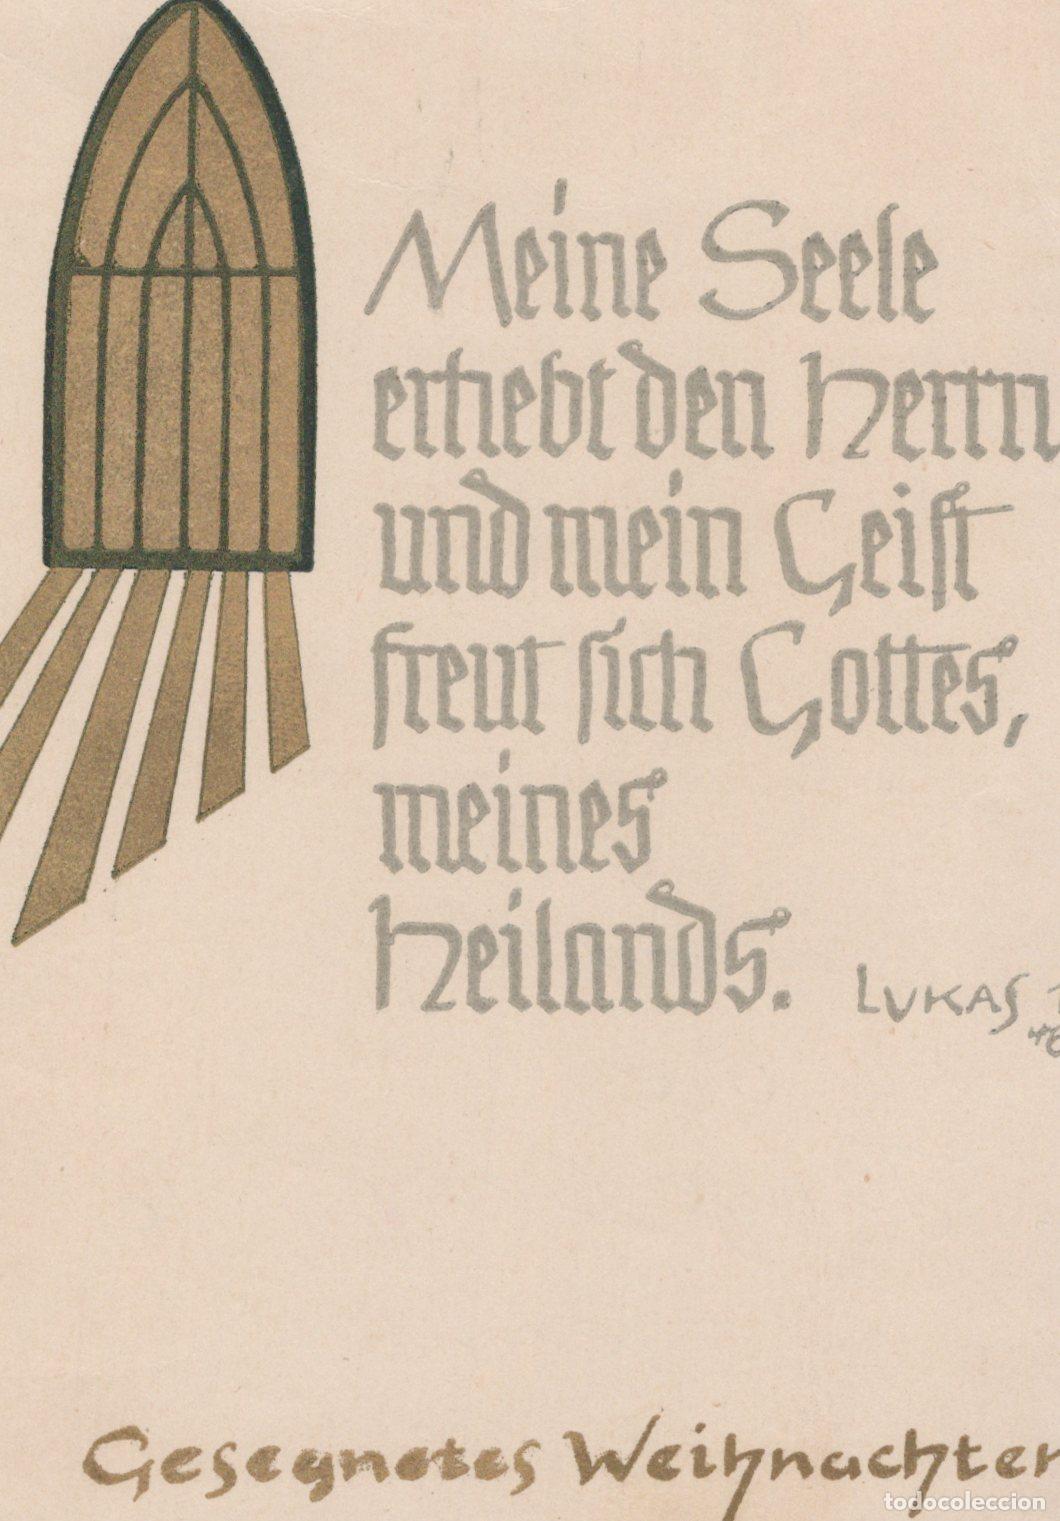 Meine Seele
erhebt den Herrn
und mein Geist
freut sich Gottes,
meines
Heilands.
LUKAS 1
46
Gesegnetes Weihnachten
todocoleccion